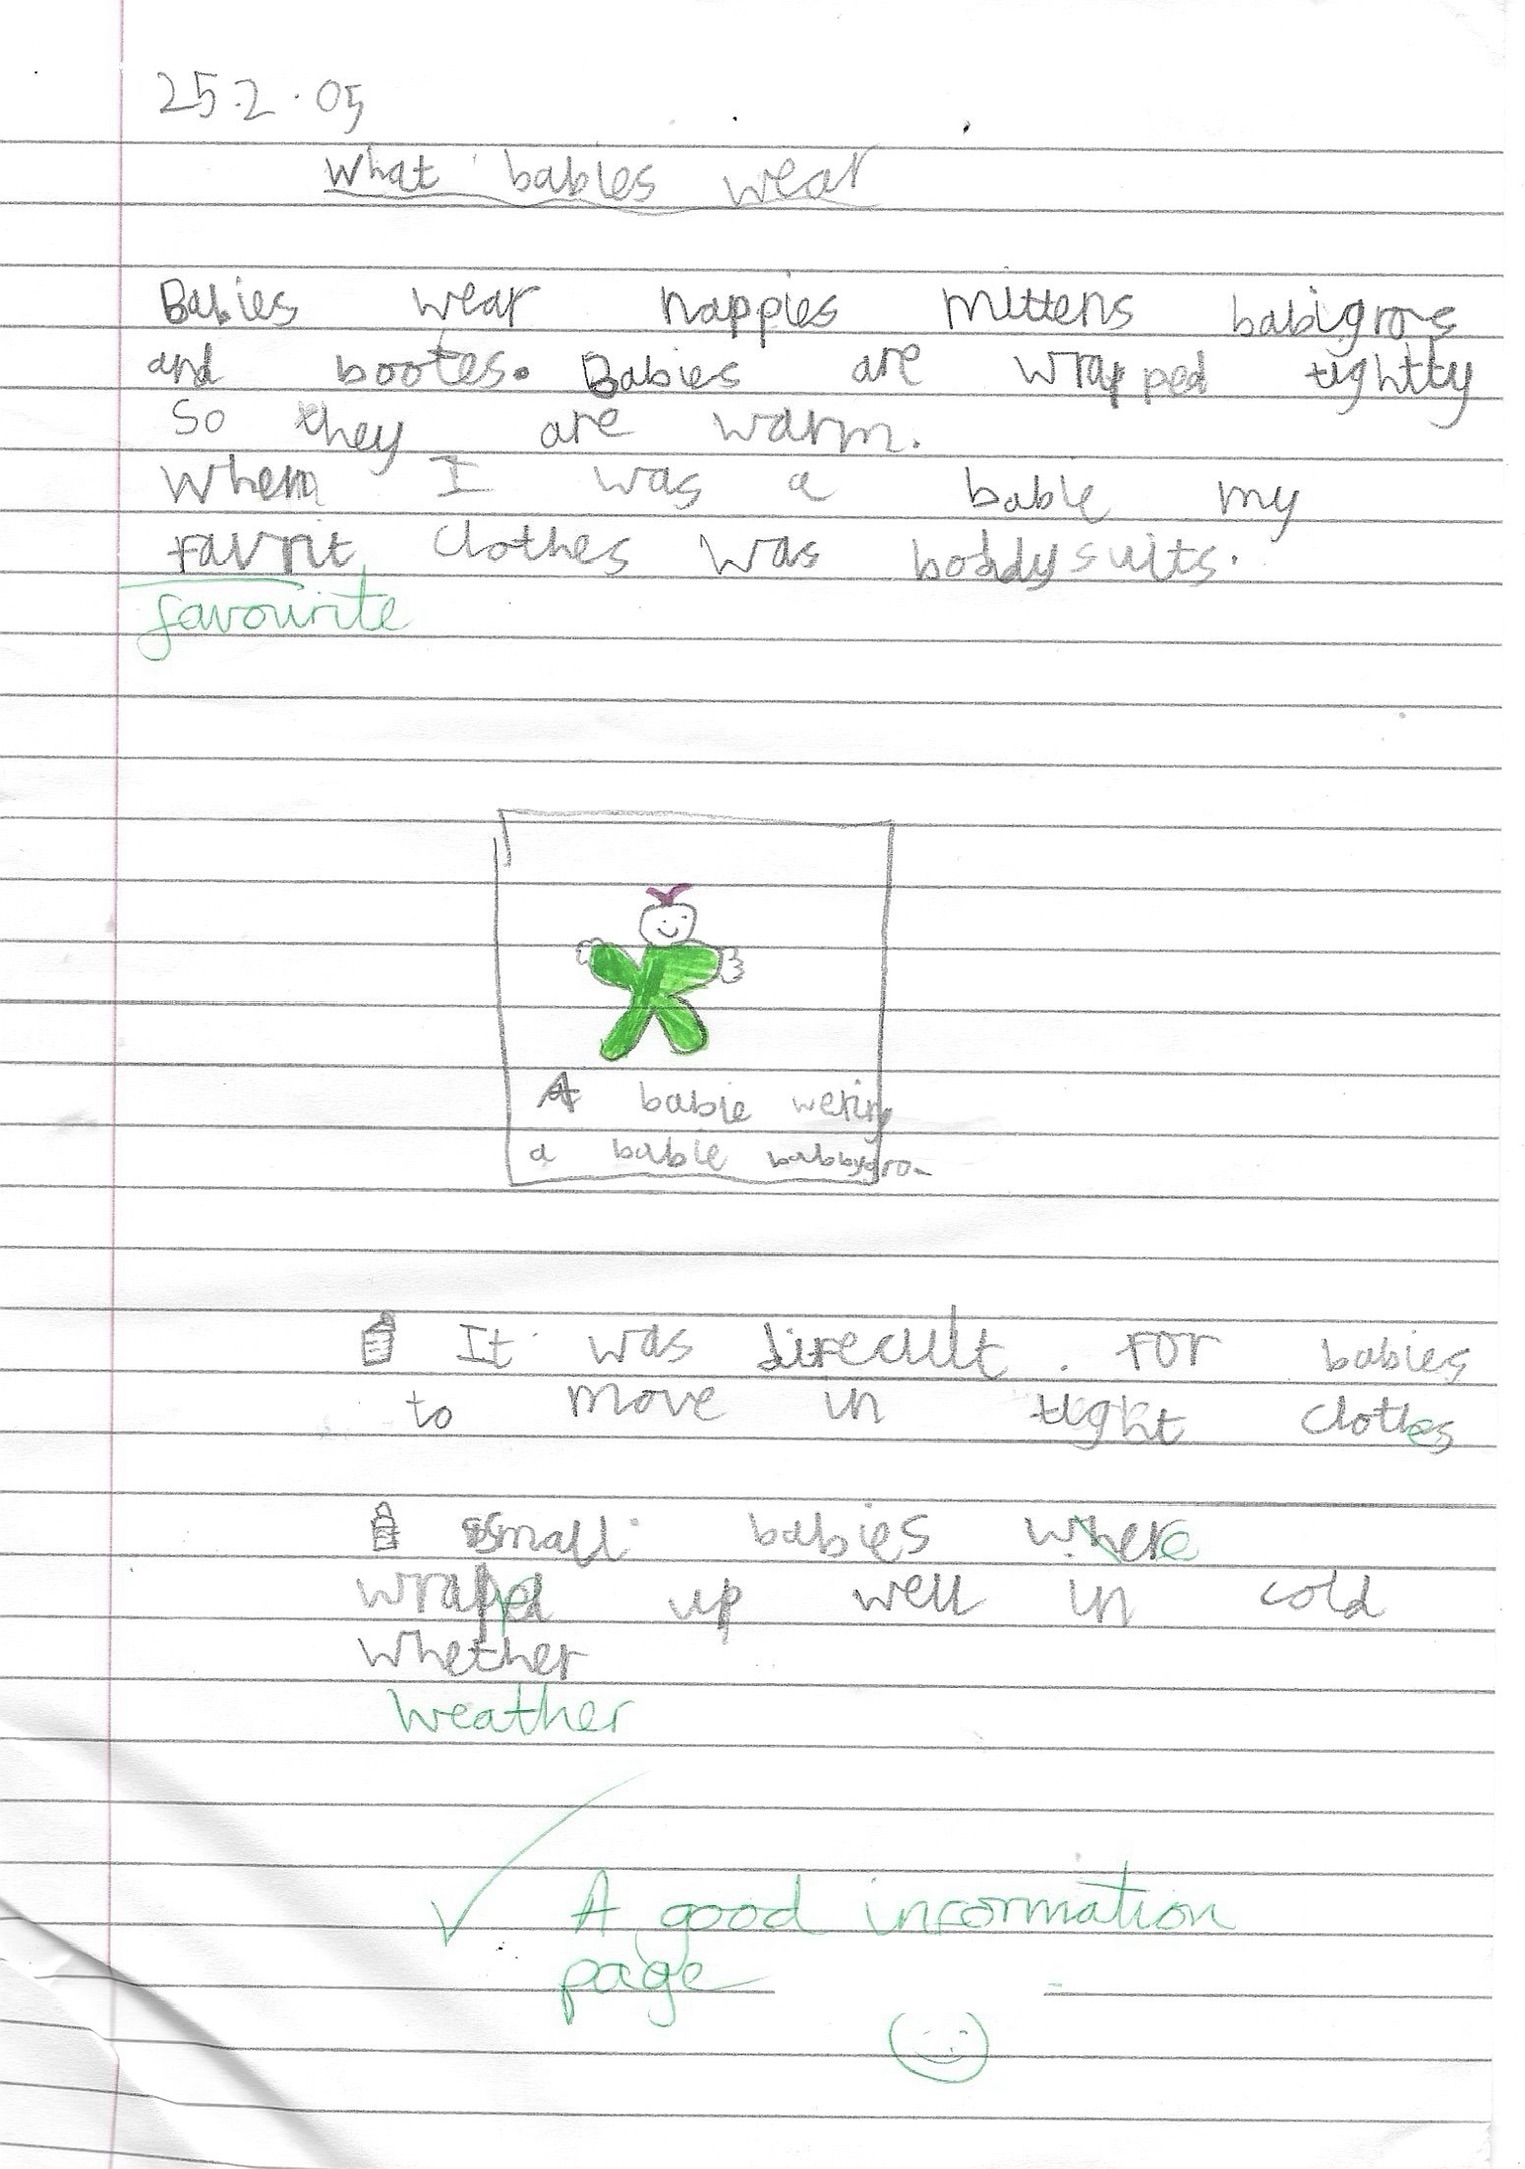 25.2.05
What babies wear
Babies wear nappies mittens babigros
and bootes. Babies are wrapped tightty
So they are warm.
When I was a babie my
favrit clothes was boddysuits.
favourite
A babie wering
a babie babbygro
It was direcult. For babies
to move in tight clothes
small babies where
wrapped up well in cold
Whether
weather
A good information
page